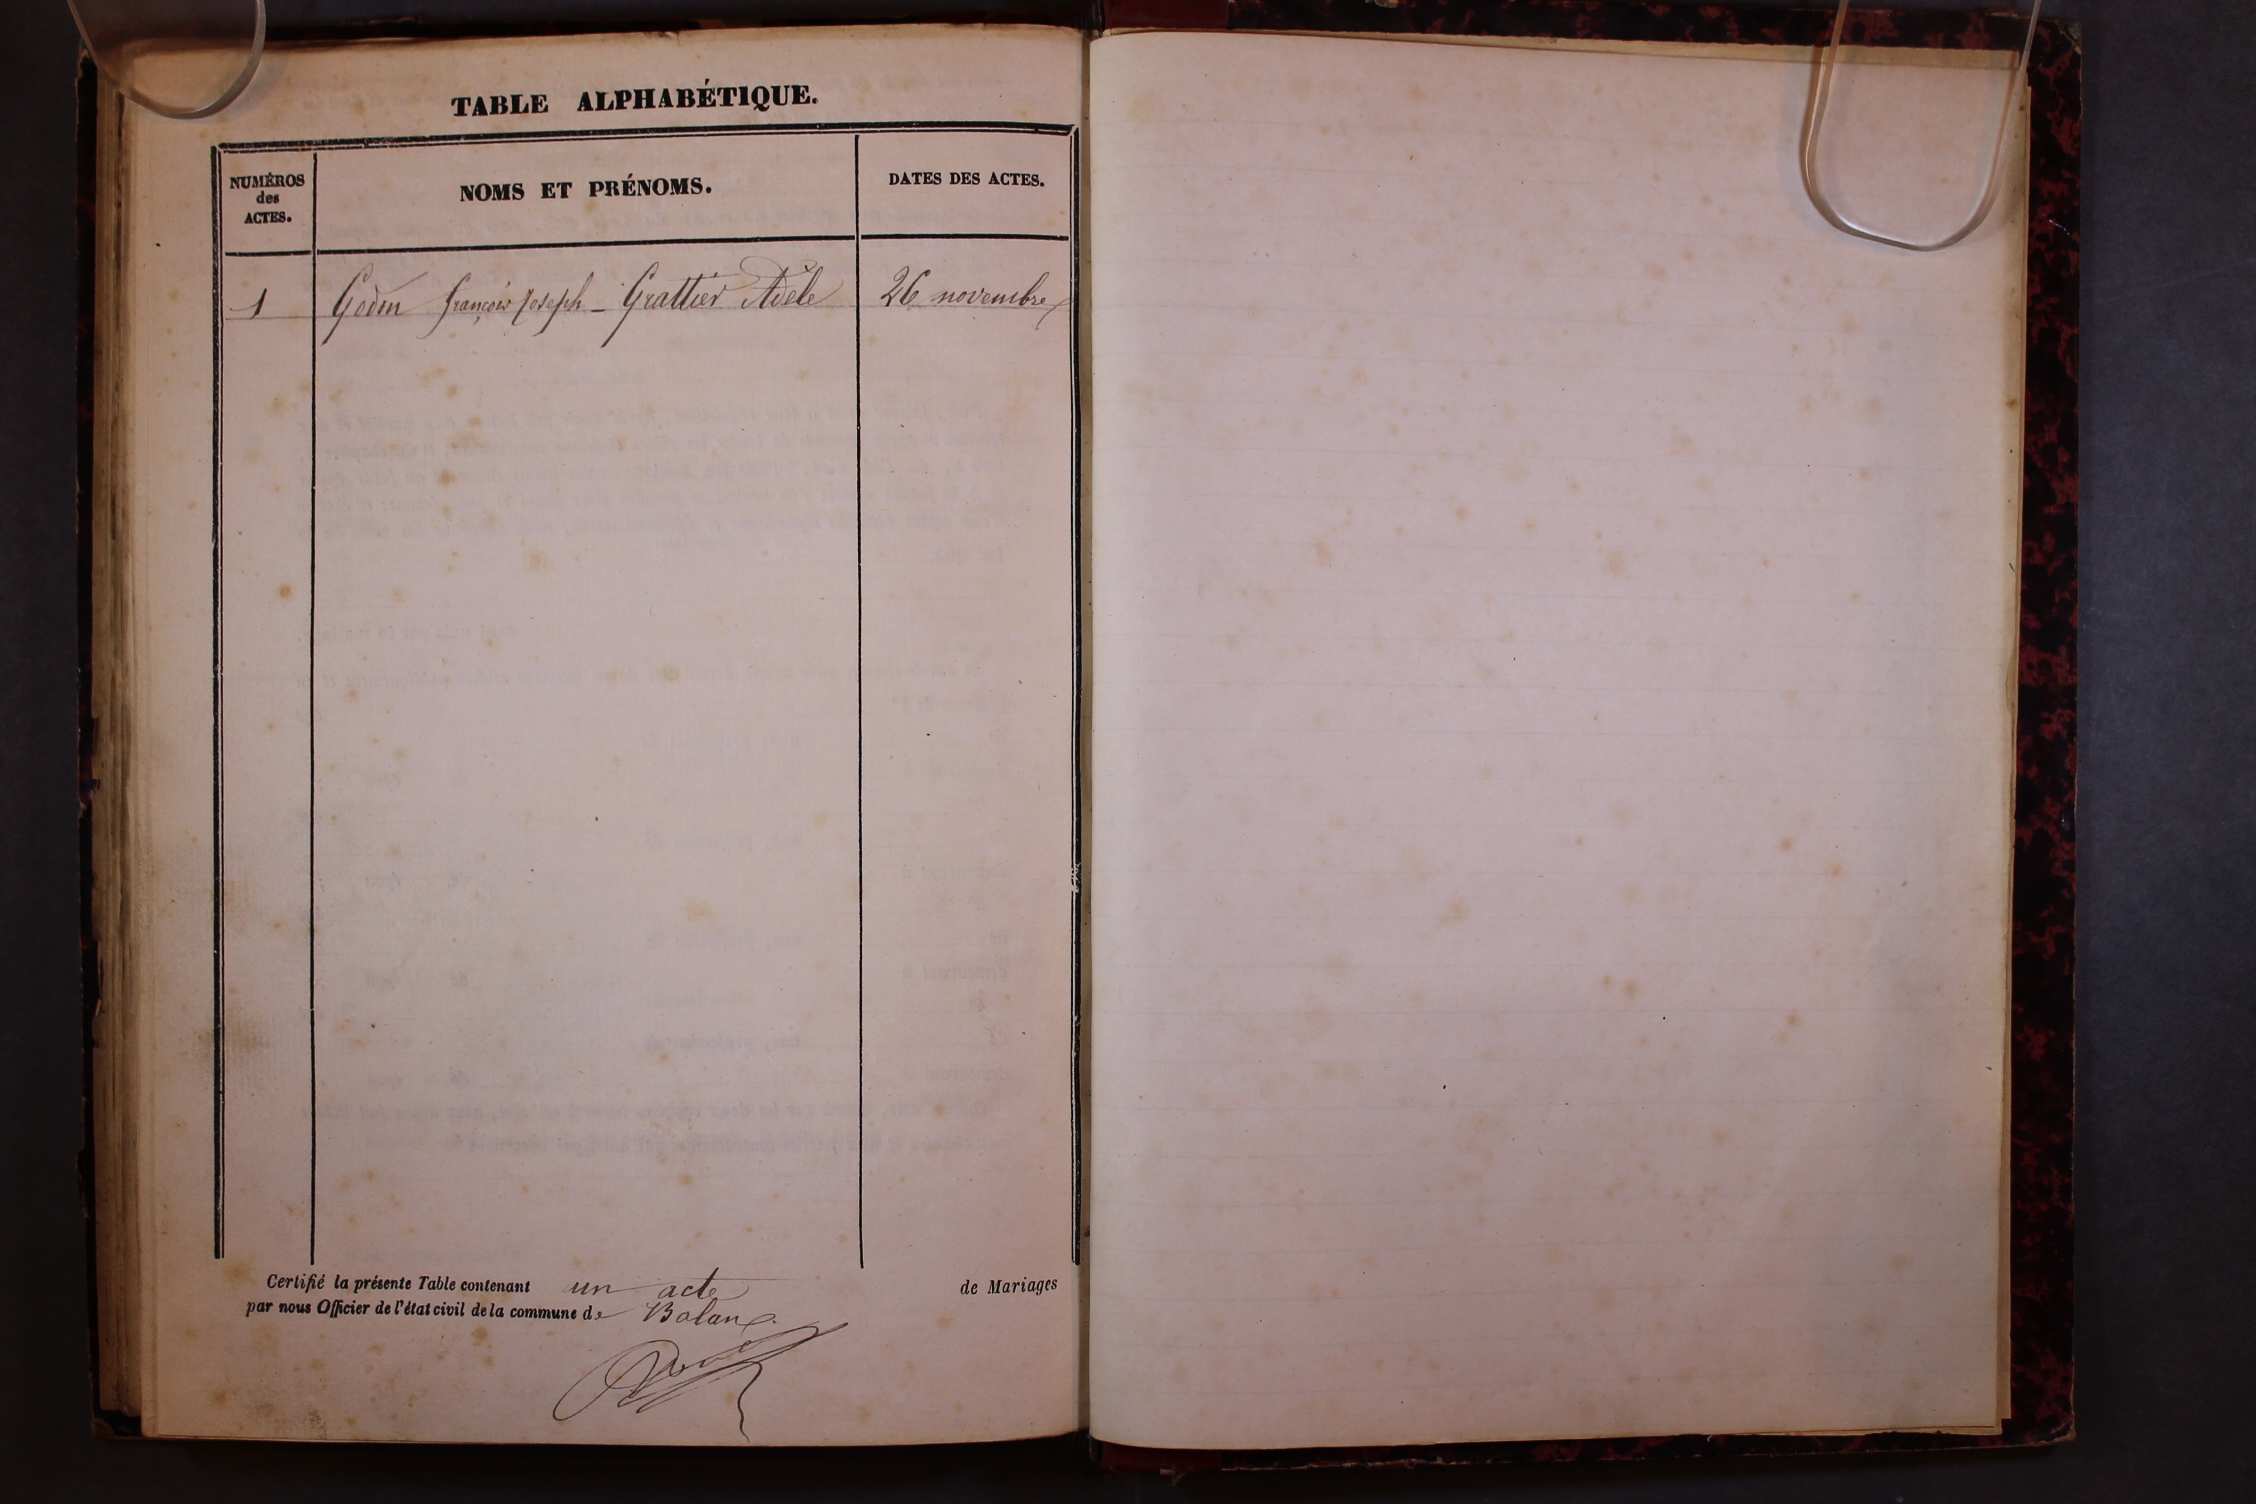 TABLE ALPHABÉTIQUE.
NUMÉROS
des
ACTES.
NOMS ET PRÉNOMS.
DATES DES ACTES.
1 Godin françois Joseph _ Grattier Adèle 26 novembre
Certifié la présente Table contenant un acte de Mariages
par nous Officier de l'état civil de la commune de